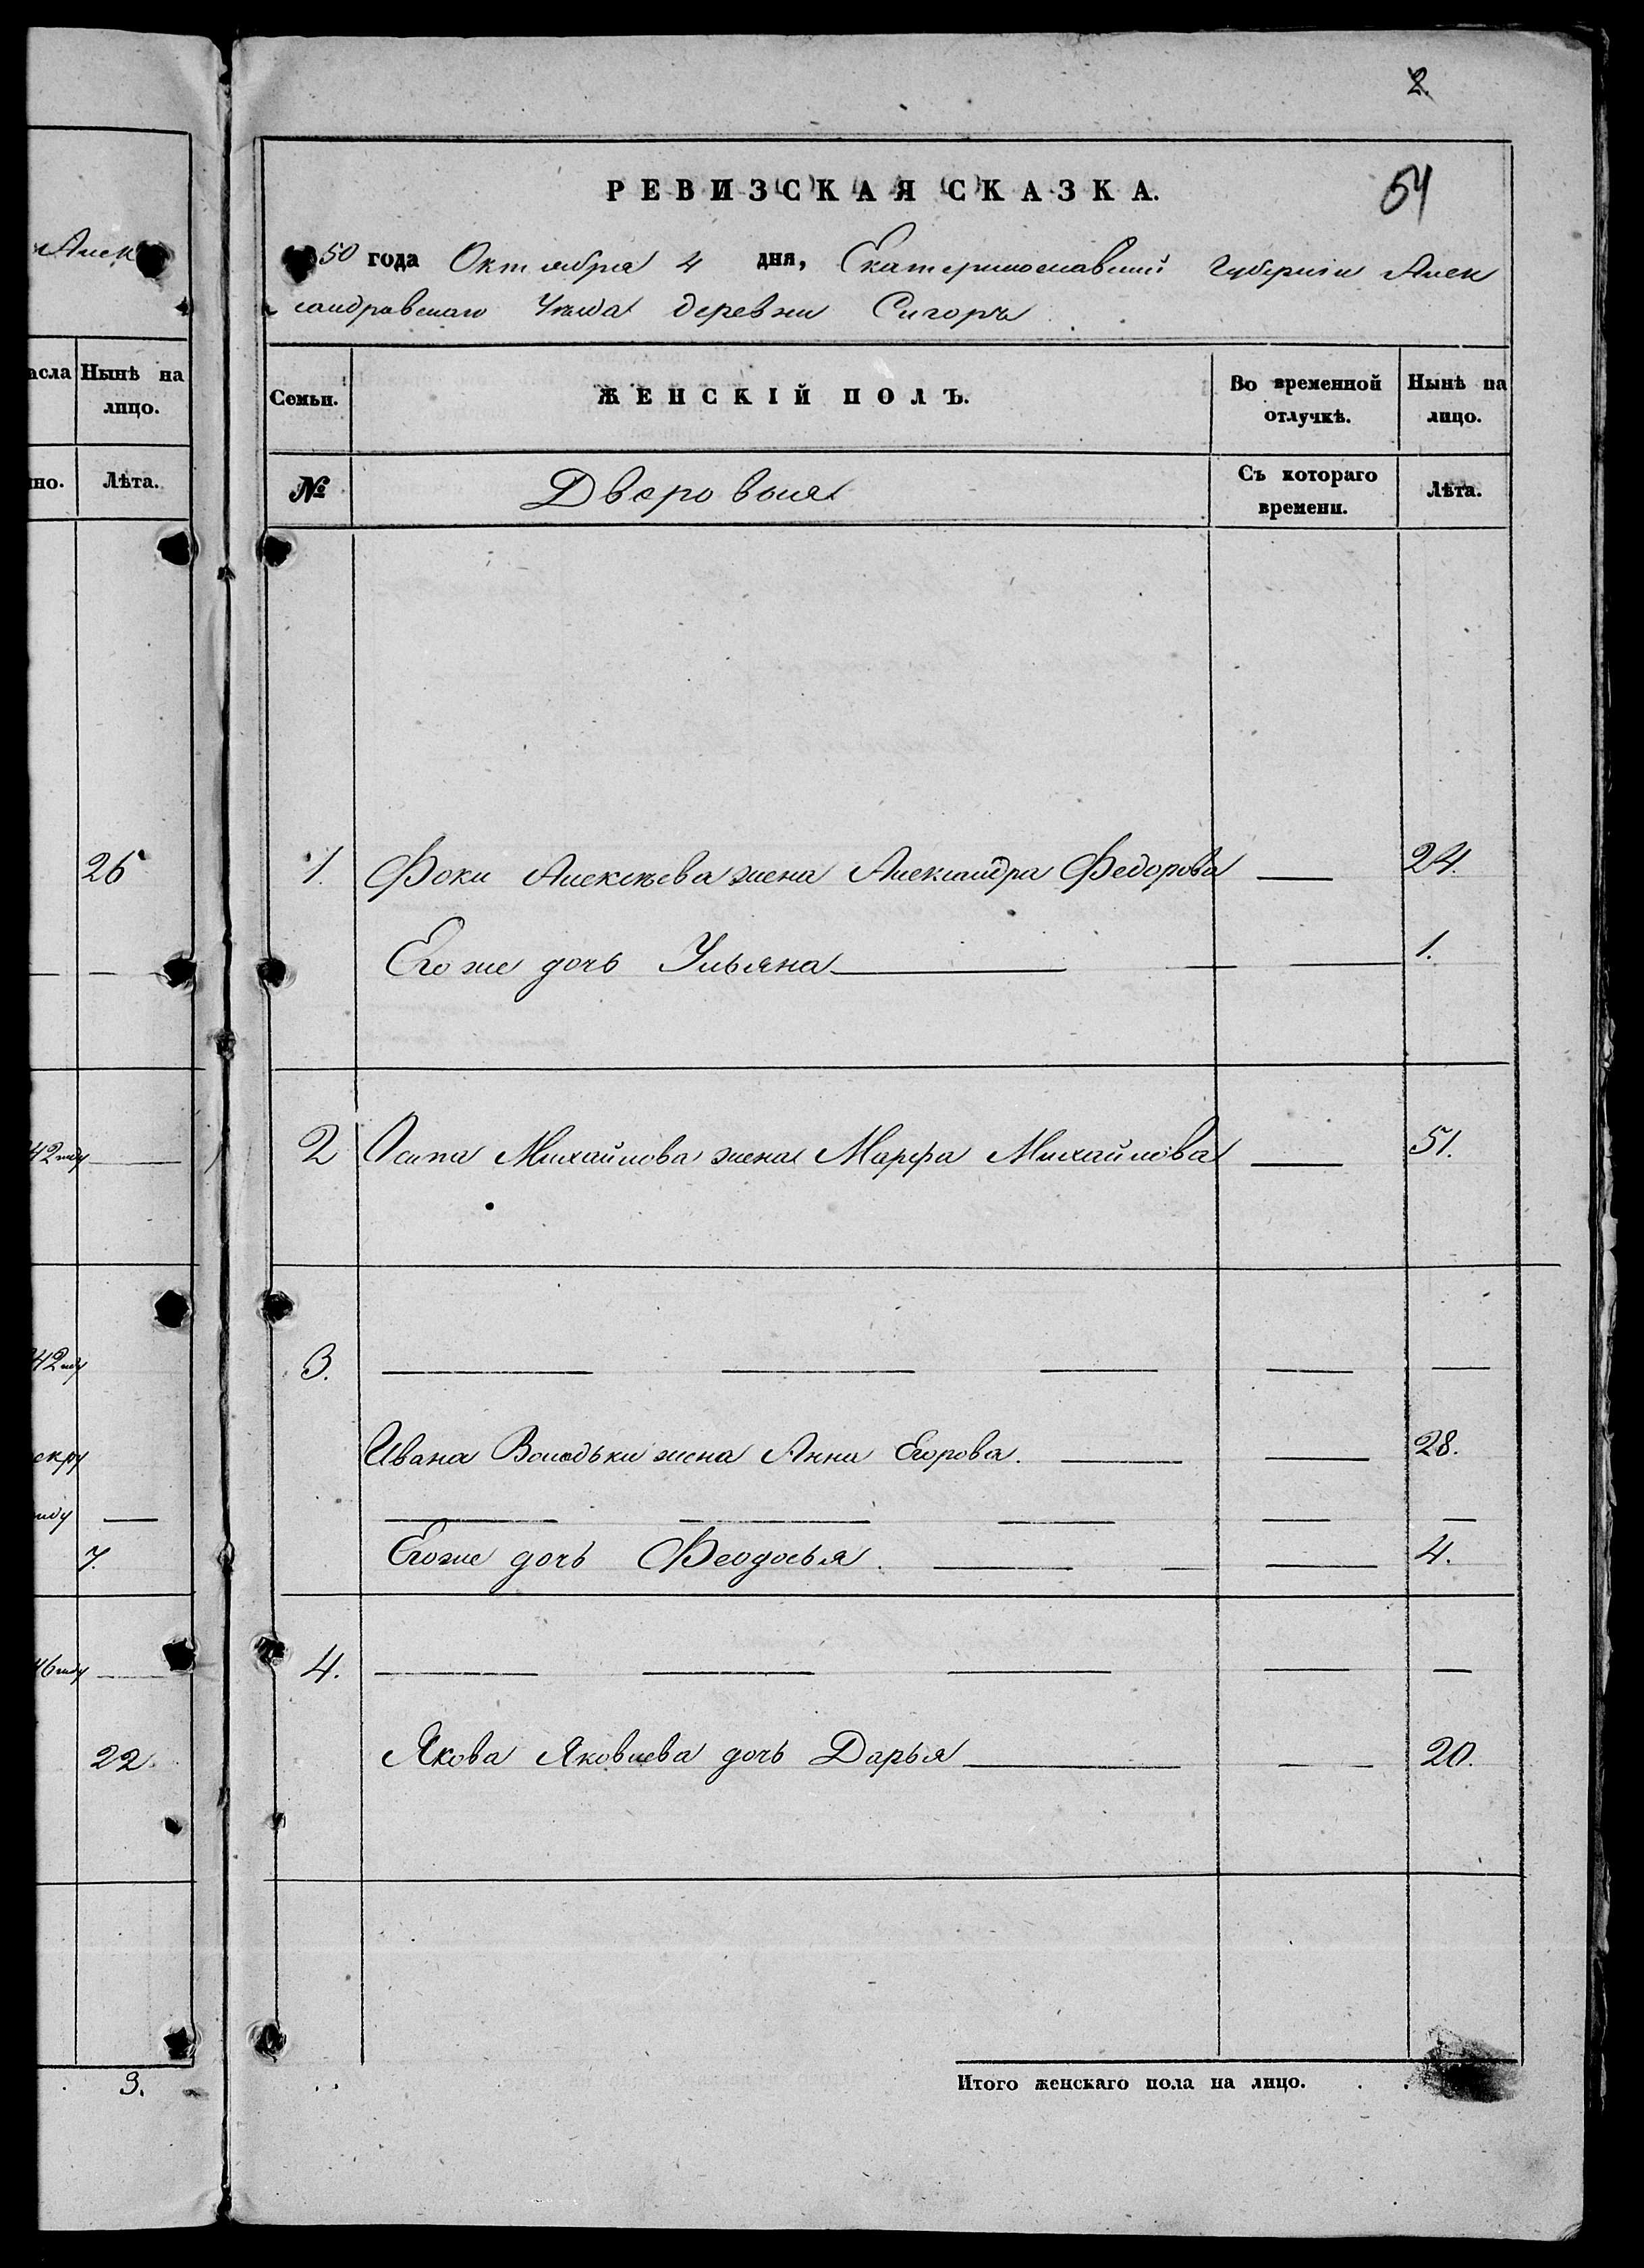 2.
РЕВИЗСКАЯ СКАЗКА.
54
50 года Октября 4 дня, Екатеринославской Губернии Алек
сандравскаго Уезда деревни Сигоръ
Семьи.
ЖЕНСКІЙ ПОЛЪ.
Во временной отлучкѣ.
Нынѣ на лицо.
№
Дворовыя
Съ котораго времени.
Лѣта.
1. Фоки Алексѣева жена Александра Федорова — 24.
Его же дочь Ульяна — 1.
2 Осипа Михайлова жена Марфа Михайлова — 51.
3. — — — — —
Ивана Володьки жена Анна Егорова. — — 28.
— — — — —
Егоже дочь Феодосья. — — — 4.
4. — — — — —
Якова Яковлева дочь Дарья — — 20.
Итого женскаго пола на лицо.
Алек
Нынѣ на
лицо.
но. Лѣта.
26
— —
42 году —
42 году
скру
году —
7.
46 году —
22.
3.